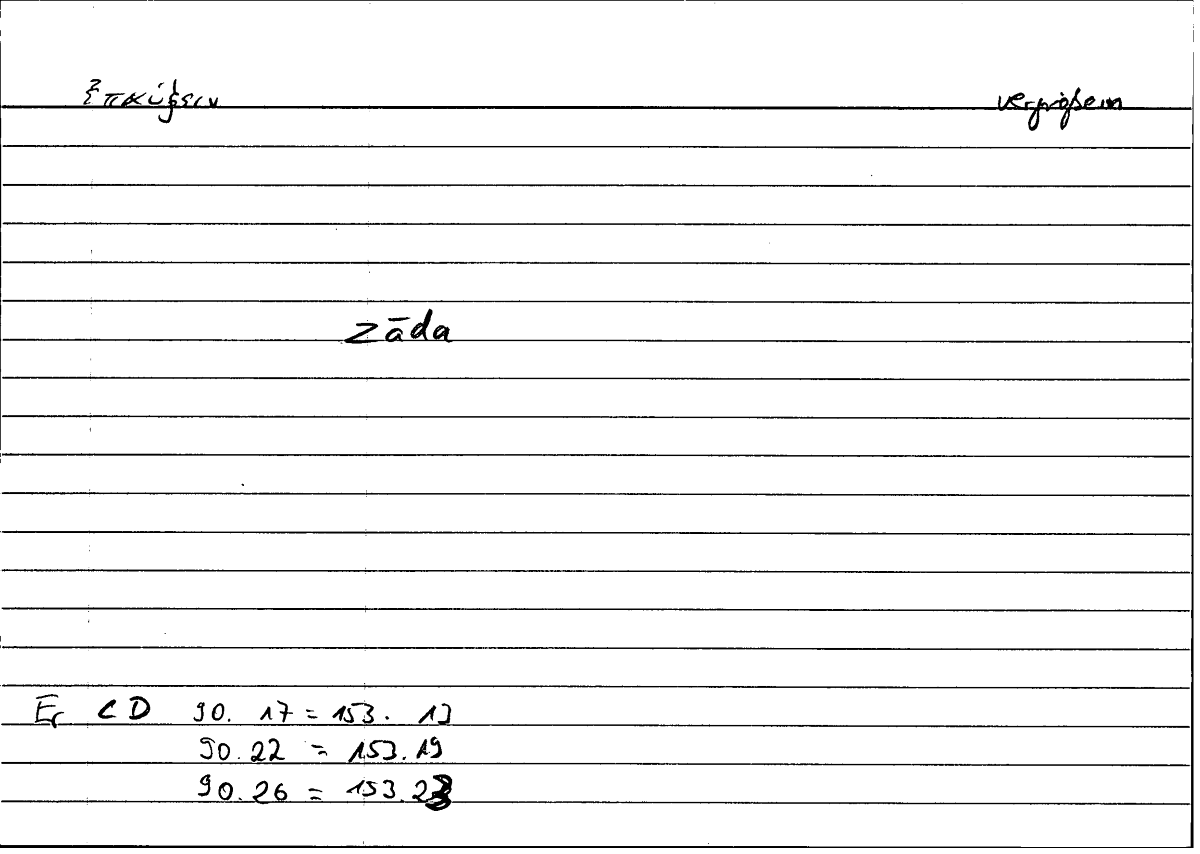 ἐπαύξειν vergrößern
zāda
Er CD 90. 17 = 153. 13
90.22 = 153.19
90.26 = 153.23